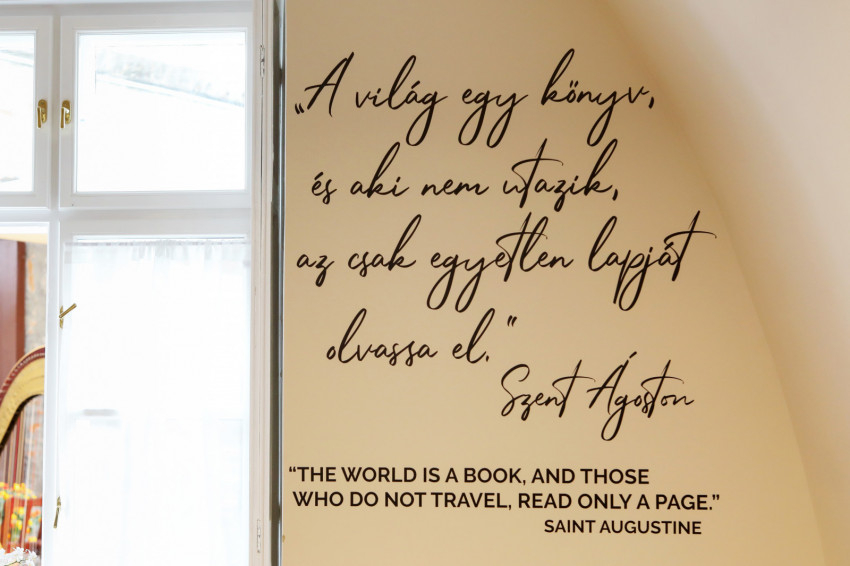 „A világ egy könyv,
és aki nem utazik,
az csak egyetlen lapját
olvassa el."
Szent Ágoston
“THE WORLD IS A BOOK, AND THOSE
WHO DO NOT TRAVEL, READ ONLY A PAGE.”
SAINT AUGUSTINE